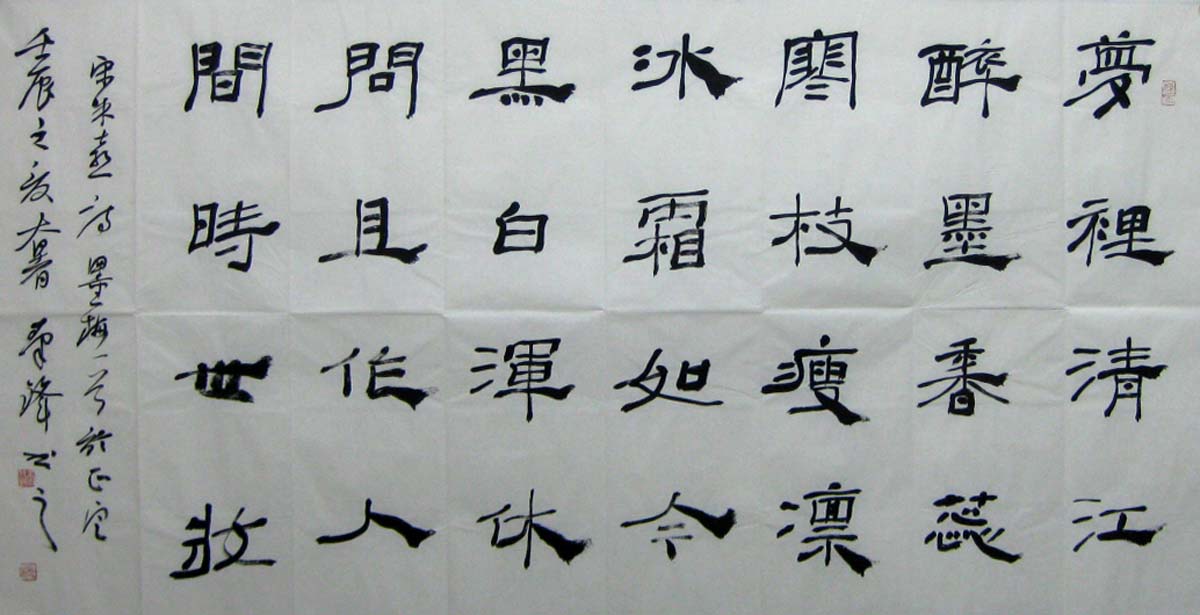 夢裡清江
醉墨香蕊
寒枝瘦凛
冰霜如今
黑白渾休
問且作人
間時世妝
宋朱熹詩墨梅一首於正定
壬辰之夏大暑 鋒书之